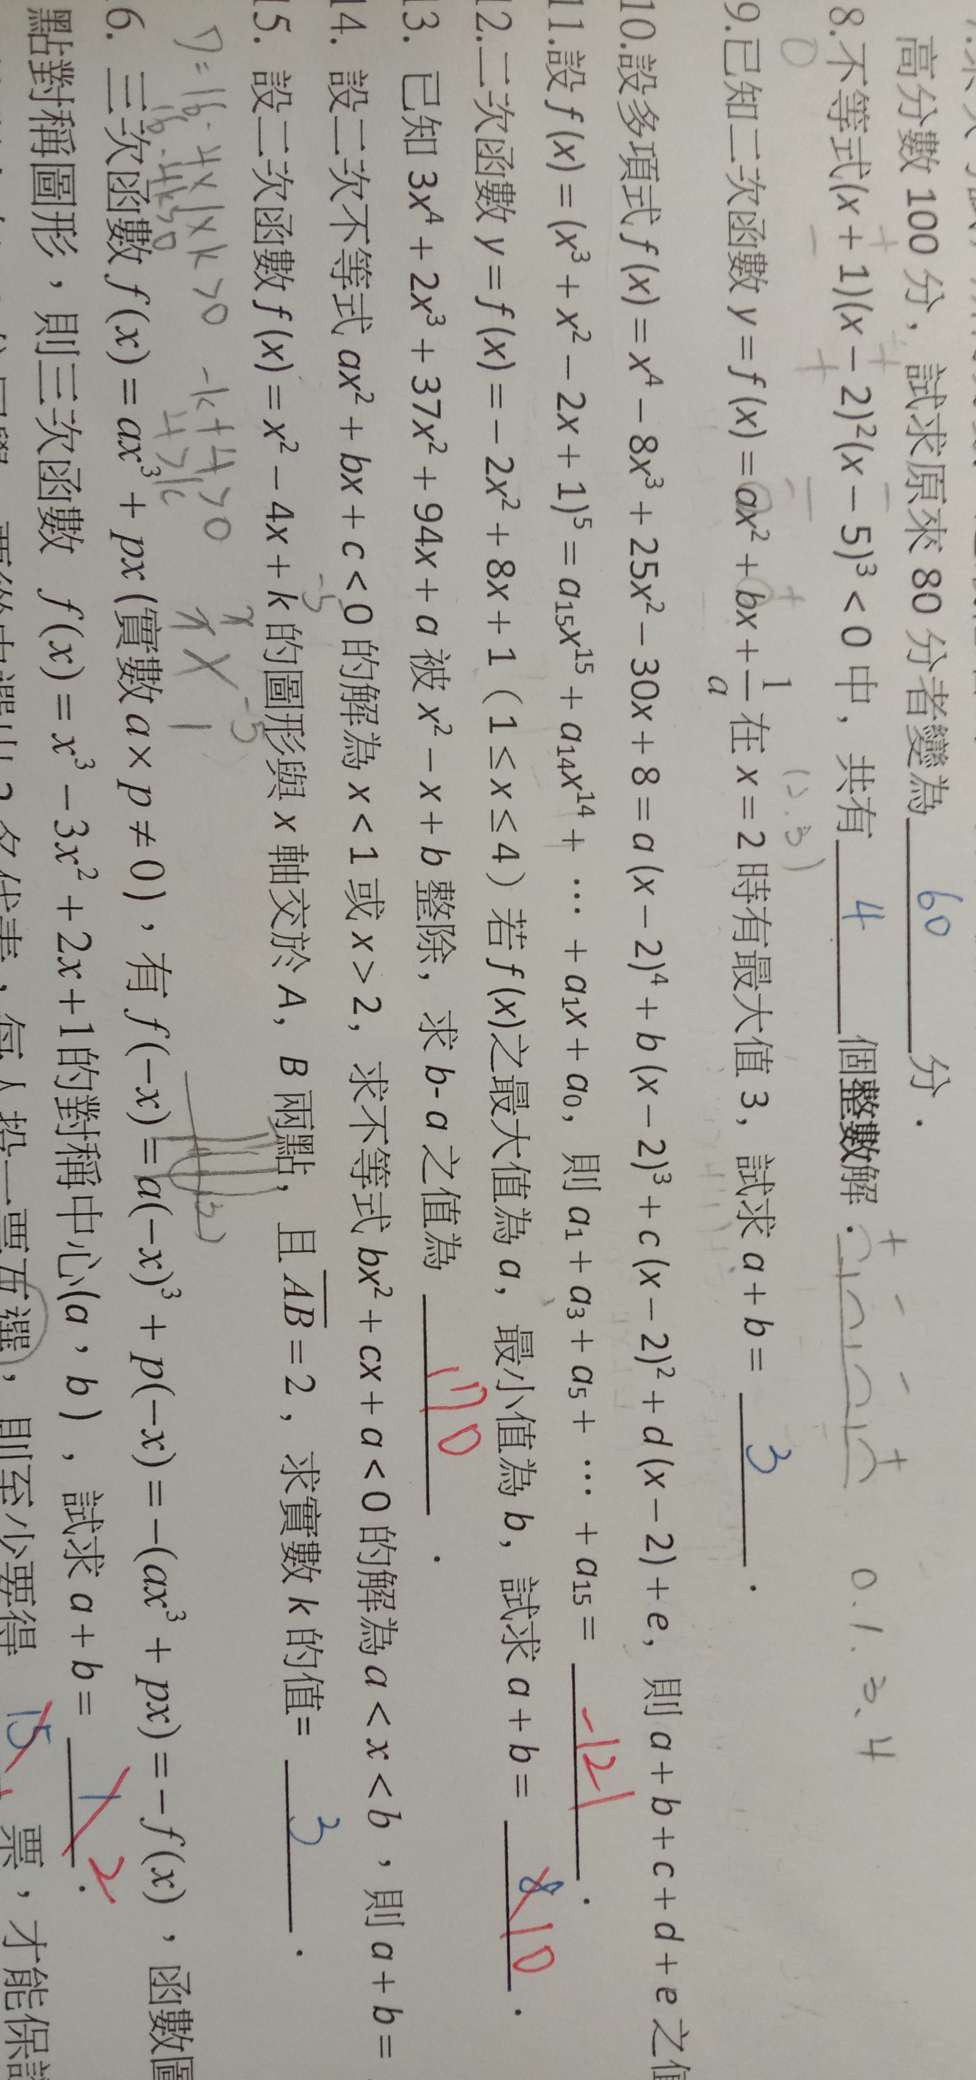 高分數 100 分，試求原來 80 分者變為 60 分．
8.不等式(x + 1)(x − 2)²(x − 5)³ < 0 中，共有 4 個整數解． 0、1、3、4
9.已知二次函數 y = f (x) = ax² + bx + 1/a 在 x = 2 時有最大值 3，試求 a + b = 3 ．
10.設多項式 f (x) = x⁴ − 8x³ + 25x² − 30x + 8 = a (x − 2)⁴ + b (x − 2)³ + c (x − 2)² + d (x − 2) + e，則 a + b + c + d + e 之
11.設 f (x) = (x³ + x² − 2x + 1)⁵ = a₁₅x¹⁵ + a₁₄x¹⁴ + … + a₁x + a₀，則 a₁ + a₃ + a₅ + … + a₁₅ = -121 ．
12.二次函數 y = f (x) = − 2x² + 8x + 1（ 1 ≤ x ≤ 4 ）若 f (x)之最大值為 a，最小值為 b，試求 a + b = 8 10 ．
13. 已知 3x⁴ + 2x³ + 37x² + 94x + a 被 x² − x + b 整除，求 b- a 之值為 170 ．
14. 設二次不等式 ax² + bx + c < 0 的解為 x < 1 或 x > 2，求不等式 bx² + cx + a < 0 的解為 a < x < b ，則 a + b =
15. 設二次函數 f (x) = x² − 4x + k 的圖形與 x 軸交於 A，B 兩點，且 AB = 2 ，求實數 k 的值= 3 ．
D = 16 - 4×1×k >0 -k+4>0
16-4k>0 4>k
6. 三次函數 f (x) = ax³ + px (實數 a × p ≠ 0)，有 f (−x) = a(−x)³ + p(−x) = −(ax³ + px) = − f (x) ，函數圖
點對稱圖形 ，則三次函數 f (x) = x³ − 3x² + 2x +1 的對稱中心(a，b) ，試求 a + b = 1 2 ．
名代表，每人投一票互選，則至少要得 15 票，才能保證